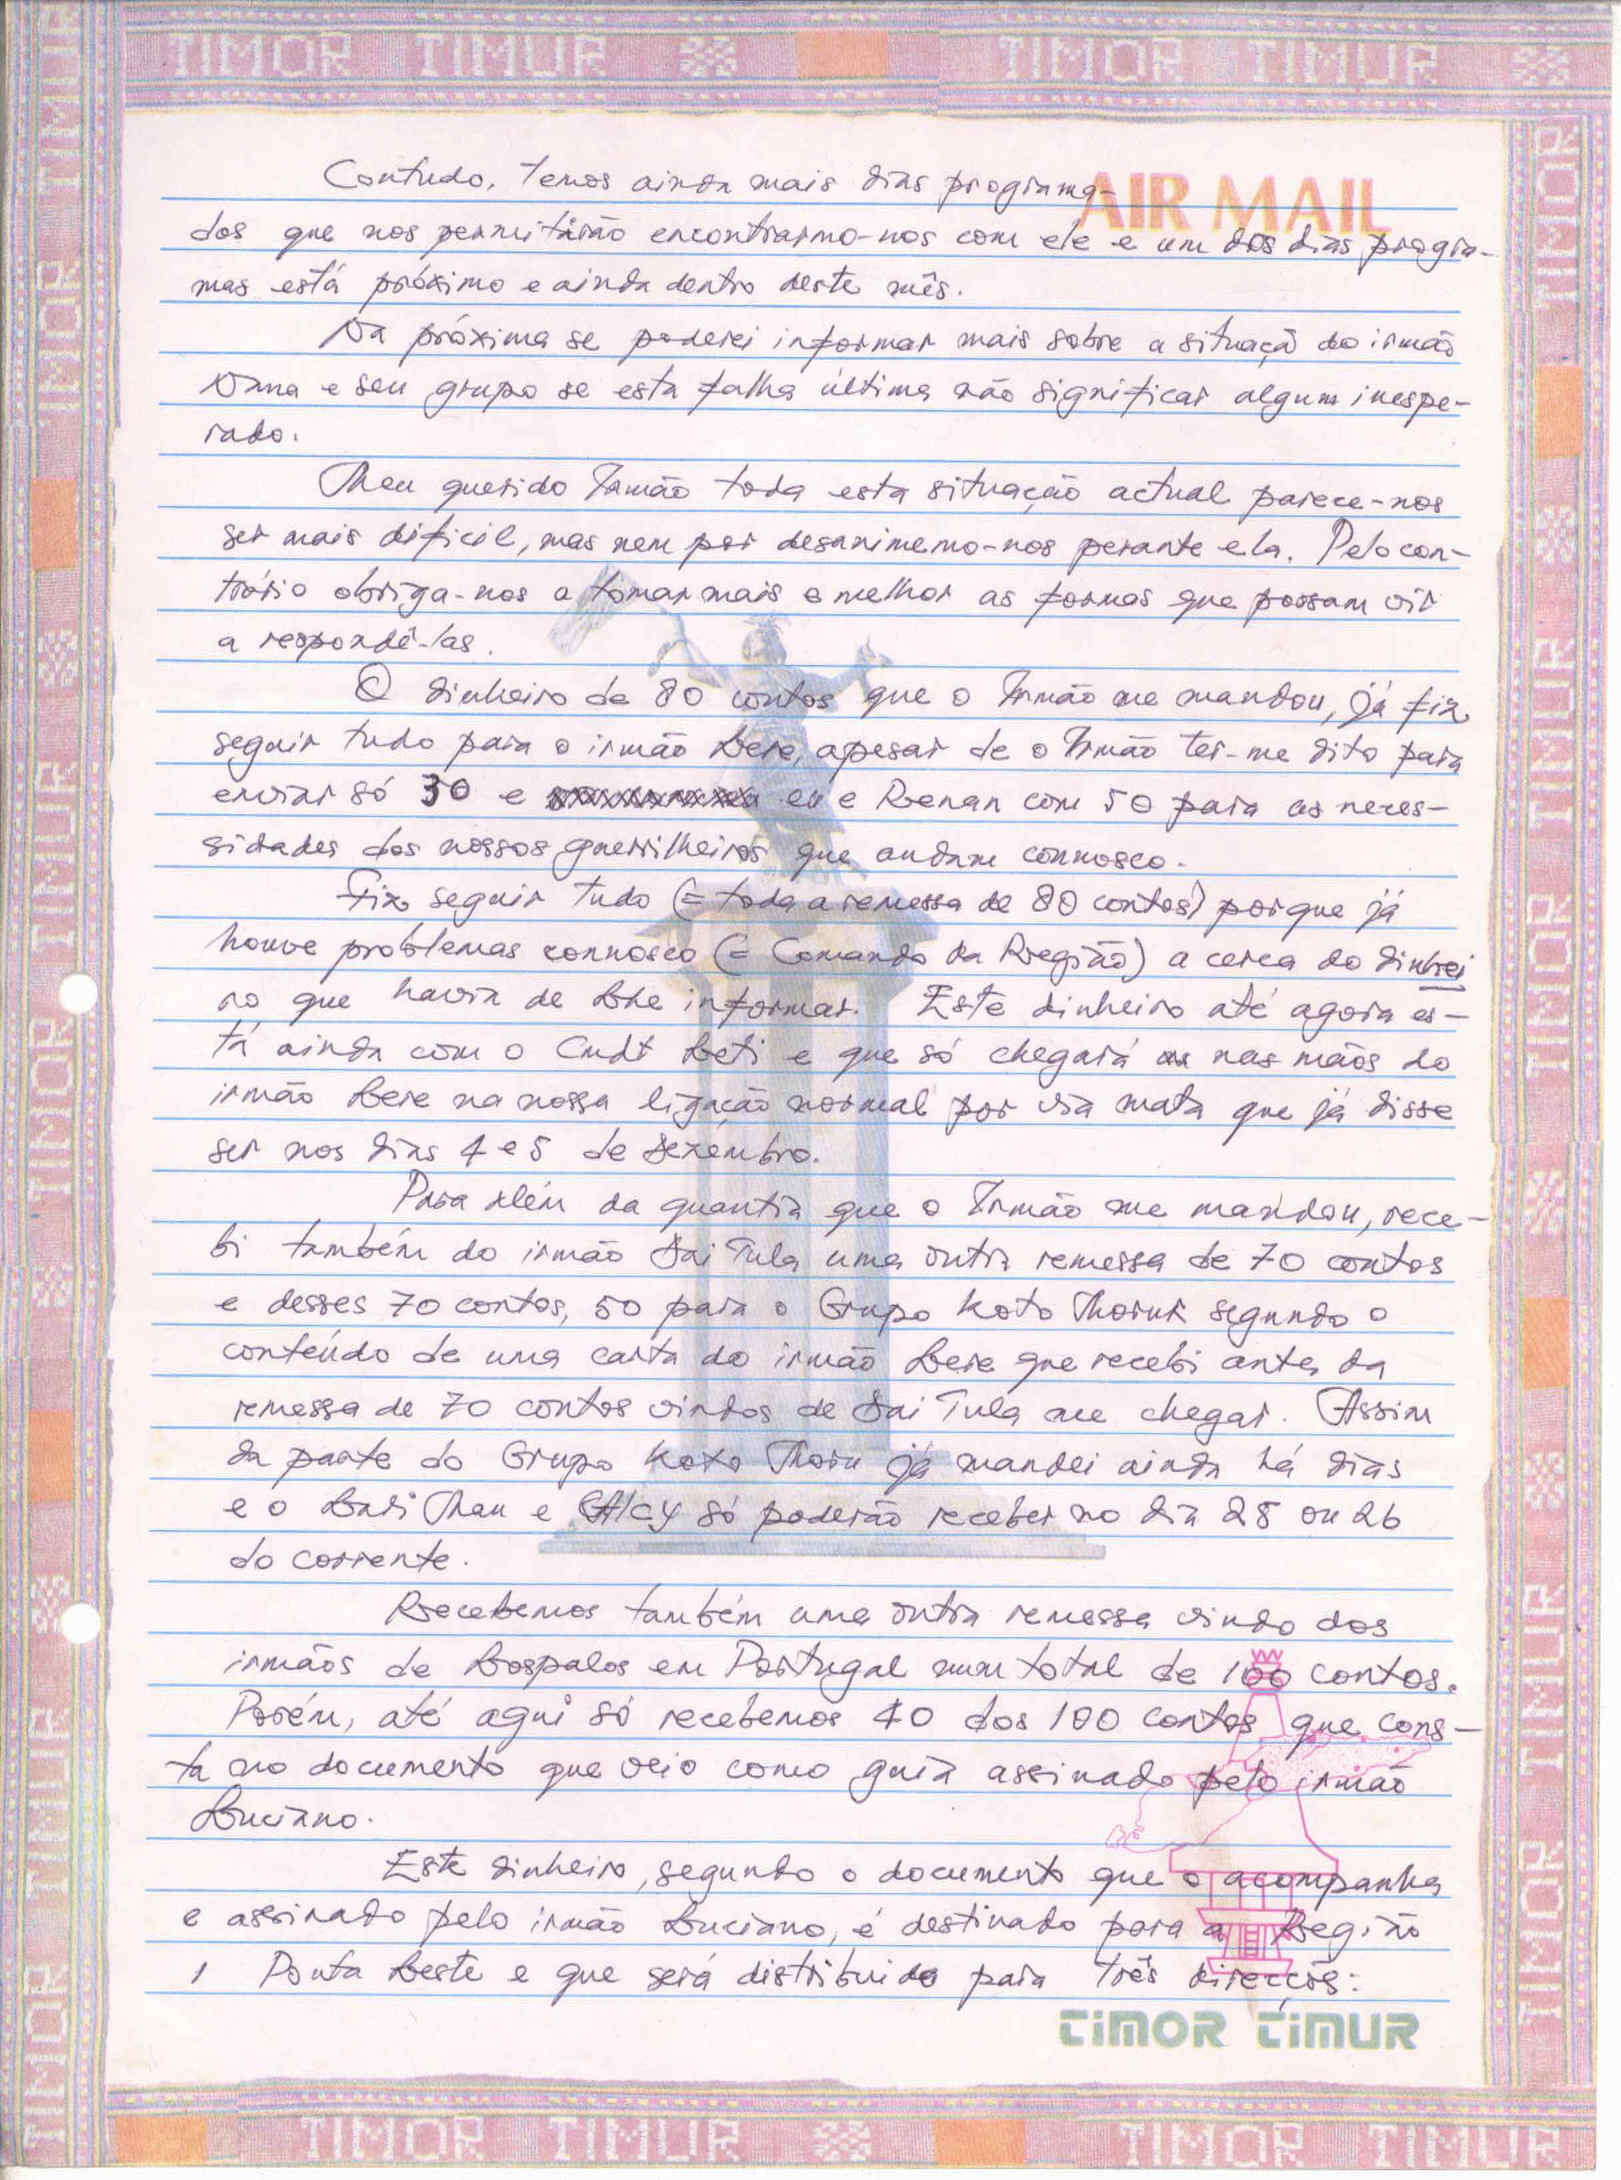 TIMOR TIMUR TIMOR TIMUR
AIR MAIL
Contudo, temos ainda mais dias programa-
dos que nos permitirão encontrarmo-nos com ele e um dos dias progra-
mas está próximo e ainda dentro deste mês.
Na próxima se poderei informar mais sobre a situaçã do irmão
e seu grupo se esta falha última não significar algum inespe-
rado.
Meu querido Irmão toda esta situação actual parece-nos
ser mais dificil, mas nem por desanimemo-nos perante ela. Pelo con-
trário obriga-nos a tomar mais e melhor as formas que possam vir
a respondê-las.
O dinheiro de 80 contos que o Irmão me mandou, já fiz
seguir tudo para o irmão Lere, apesar de o Irmão ter-me dito para
enviar só 30 e eu e Renan com 50 para as neces-
sidades dos nossos guerrilheiros que andam connosco.
Fiz seguir tudo (= toda a remessa de 80 contos) porque já
houve problemas connosco (= Comando da Região) a cerca do dinhei
ro que havia de Lhe informar. Este dinheiro até agora es-
tá ainda com o Cmdt Leti e que só chegará nas mãos do
irmão Lere na nossa ligação normal por via mata que já disse
ser nos dias 4 e 5 de Dezembro.
Para além da quantia que o Irmão me mandou, rece-
bi também do irmão Sai Tula uma outra remessa de 70 contos
e desses 70 contos, 50 para o Grupo Koto Moruk segundo o
conteúdo de uma carta do irmão Lere que recebi antes da
remessa de 70 contos vindos de Sai Tula me chegar. Assim
da parte do Grupo Koto Moru já mandei ainda há dias
e o Mau e Alcy só poderão receber no dia 25 ou 26
do corrente.
Recebemos também uma outra remessa vindo dos
irmãos de Lospalos em Portugal num total de 100 contos.
Porém, até aqui só recebemos 40 dos 100 contos que cons-
ta no documento que veio como guia assinado pelo irmão
Luciano.
Este dinheiro, segundo o documento que o acompanha
e assinado pelo irmão Luciano, é destinado para a Região
1 Ponta Leste e que será distribuido para três direcçõs:
TIMOR TIMUR
TIMOR TIMUR TIMOR TIMUR